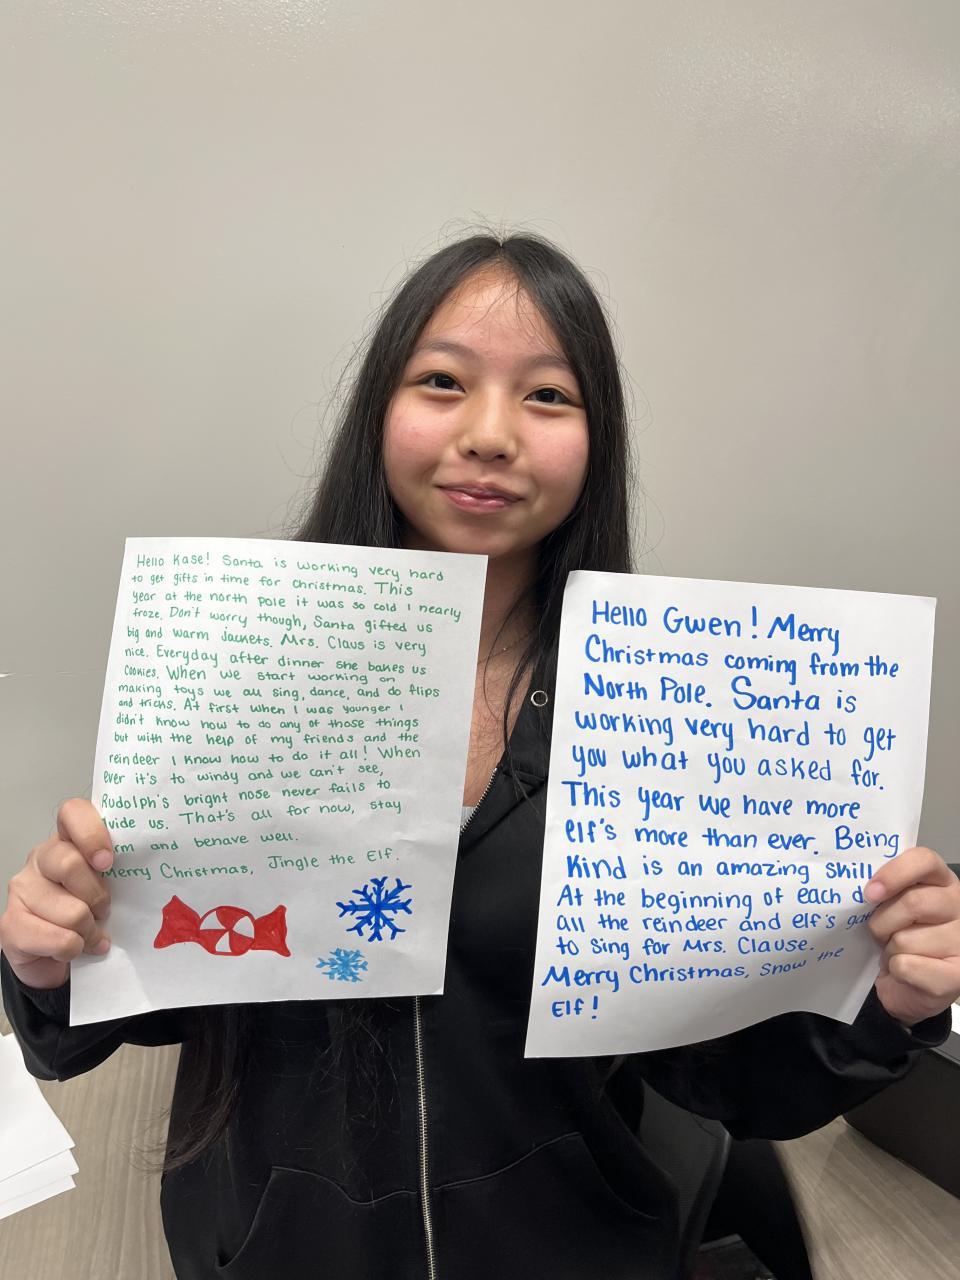 Hello Kase! Santa is working very hard
to get gifts in time for Christmas. This
year at the north pole it was so cold I nearly
froze. Don't worry though, Santa gifted us
big and warm jackets. Mrs. Claus is very
nice. Everyday after dinner she bakes us
cookies. When we start working on
making toys we all sing, dance, and do flips
and tricks. At first when I was younger I
didn't know how to do any of those things
but with the help of my friends and the
reindeer I know how to do it all! When
ever it's to windy and we can't see,
Rudolph's bright nose never fails to
us. That's all for now, stay
and behave well.
Merry Christmas, Jingle the Elf.
Hello Gwen! Merry
Christmas coming from the
North Pole. Santa is
working very hard to get
you what you asked for.
This year we have more
elf's more than ever. Being
Kind is an amazing skill
At the beginning of each
all the reindeer and elf's
to sing for Mrs. Clause.
Merry Christmas, Snow the
Elf!